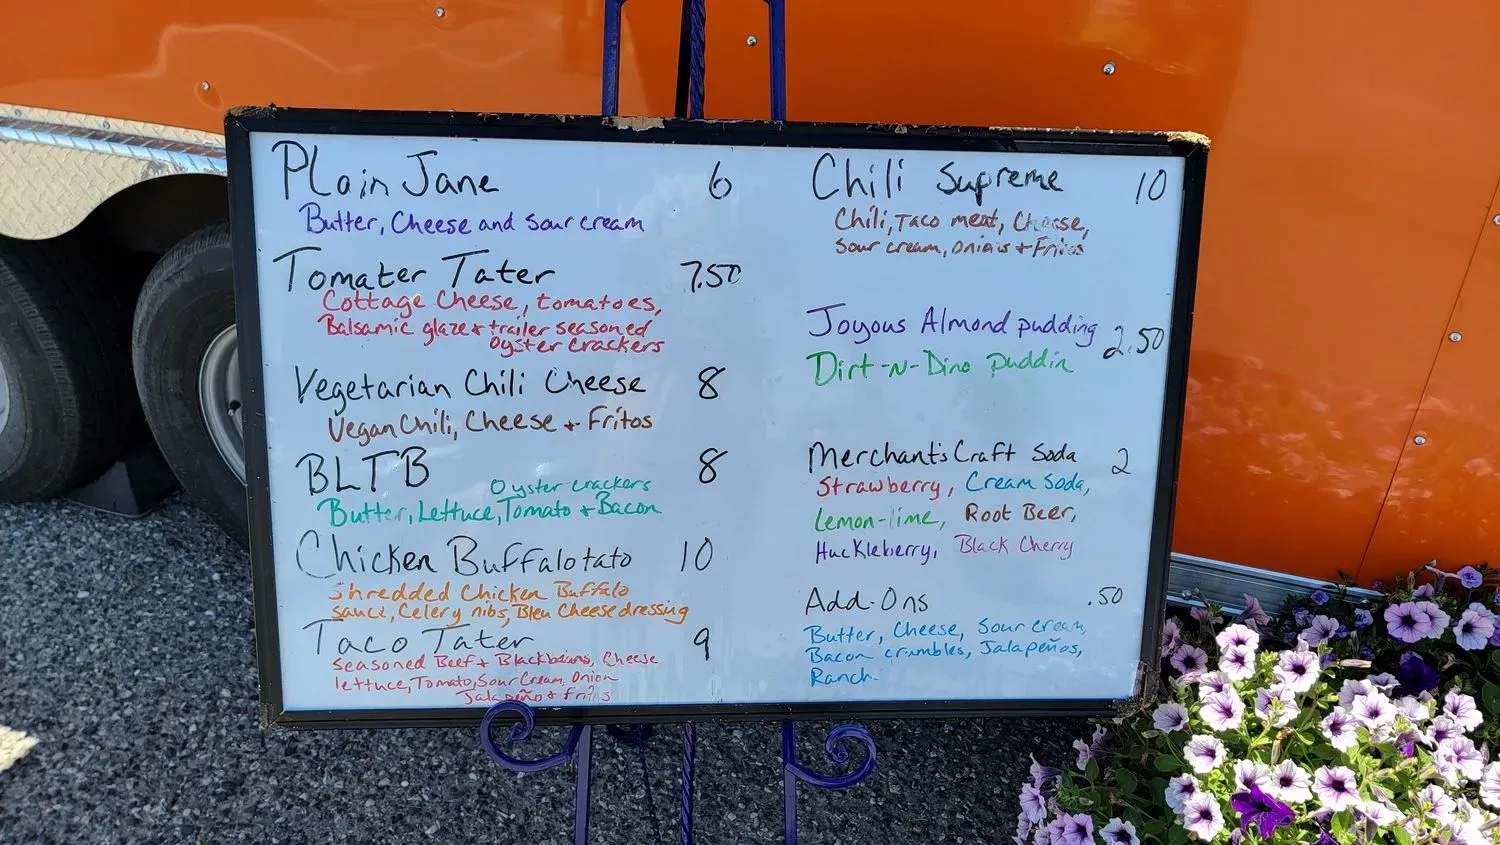 Plain Jane 6
Butter, Cheese and Sour cream
Tomater Tater 7.50
Cottage Cheese, tomatoes,
Balsamic glaze + trailer seasoned
Oyster crackers
Vegetarian Chili Cheese 8
Vegan Chili, Cheese + Fritos
BLTB 8
Oyster crackers
Butter, Lettuce, Tomato + Bacon
Chicken Buffalotato 10
Shredded Chicken Buffalo
sauce, Celery nibs, Bleu Cheese dressing
Taco Tater 9
Seasoned Beef + Blackbeans, Cheese
lettuce, Tomato, Sour Cream, Onion
Jalapeño + Fritos
Chili Supreme 10
Chili, Taco meat, Cheese,
Sour cream, Onions + Fritos
Joyous Almond pudding 2.50
Dirt-N-Dino Puddin
Merchant's Craft Soda 2
Strawberry, Cream Soda,
Lemon-lime, Root Beer,
Huckleberry, Black Cherry
Add-Ons .50
Butter, Cheese, Sour cream,
Bacon crumbles, Jalapeños,
Ranch.